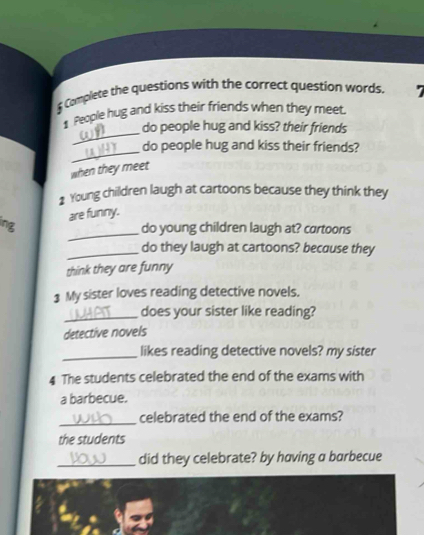 5 Complete the questions with the correct question words.
7
1 People hug and kiss their friends when they meet.
____ do people hug and kiss? their friends
WHY do people hug and kiss their friends?
when they meet
2 Young children laugh at cartoons because they think they
are funny.
____ do young children laugh at? cartoons
ing
____ do they laugh at cartoons? because they
think they are funny
3 My sister loves reading detective novels.
WHAT does your sister like reading?
detective novels
____ likes reading detective novels? my sister
4 The students celebrated the end of the exams with
a barbecue.
WHO celebrated the end of the exams?
the students
HOW did they celebrate? by having a barbecue